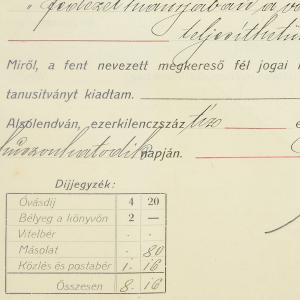 "fedezet hiányában a vá
teljesíthetü
Miről, a fent nevezett megkereső fél jogai
tanusítványt kiadtam.
Alsólendván, ezerkilenczszáz tíz é
huszonhatodik napján.
Díjjegyzék:
Óvásdíj 4 20
Bélyeg a könyvön 2 —
Vitelbér . .
Másolat . 80
Közlés és postabér 1. 16
Összesen 8. 16